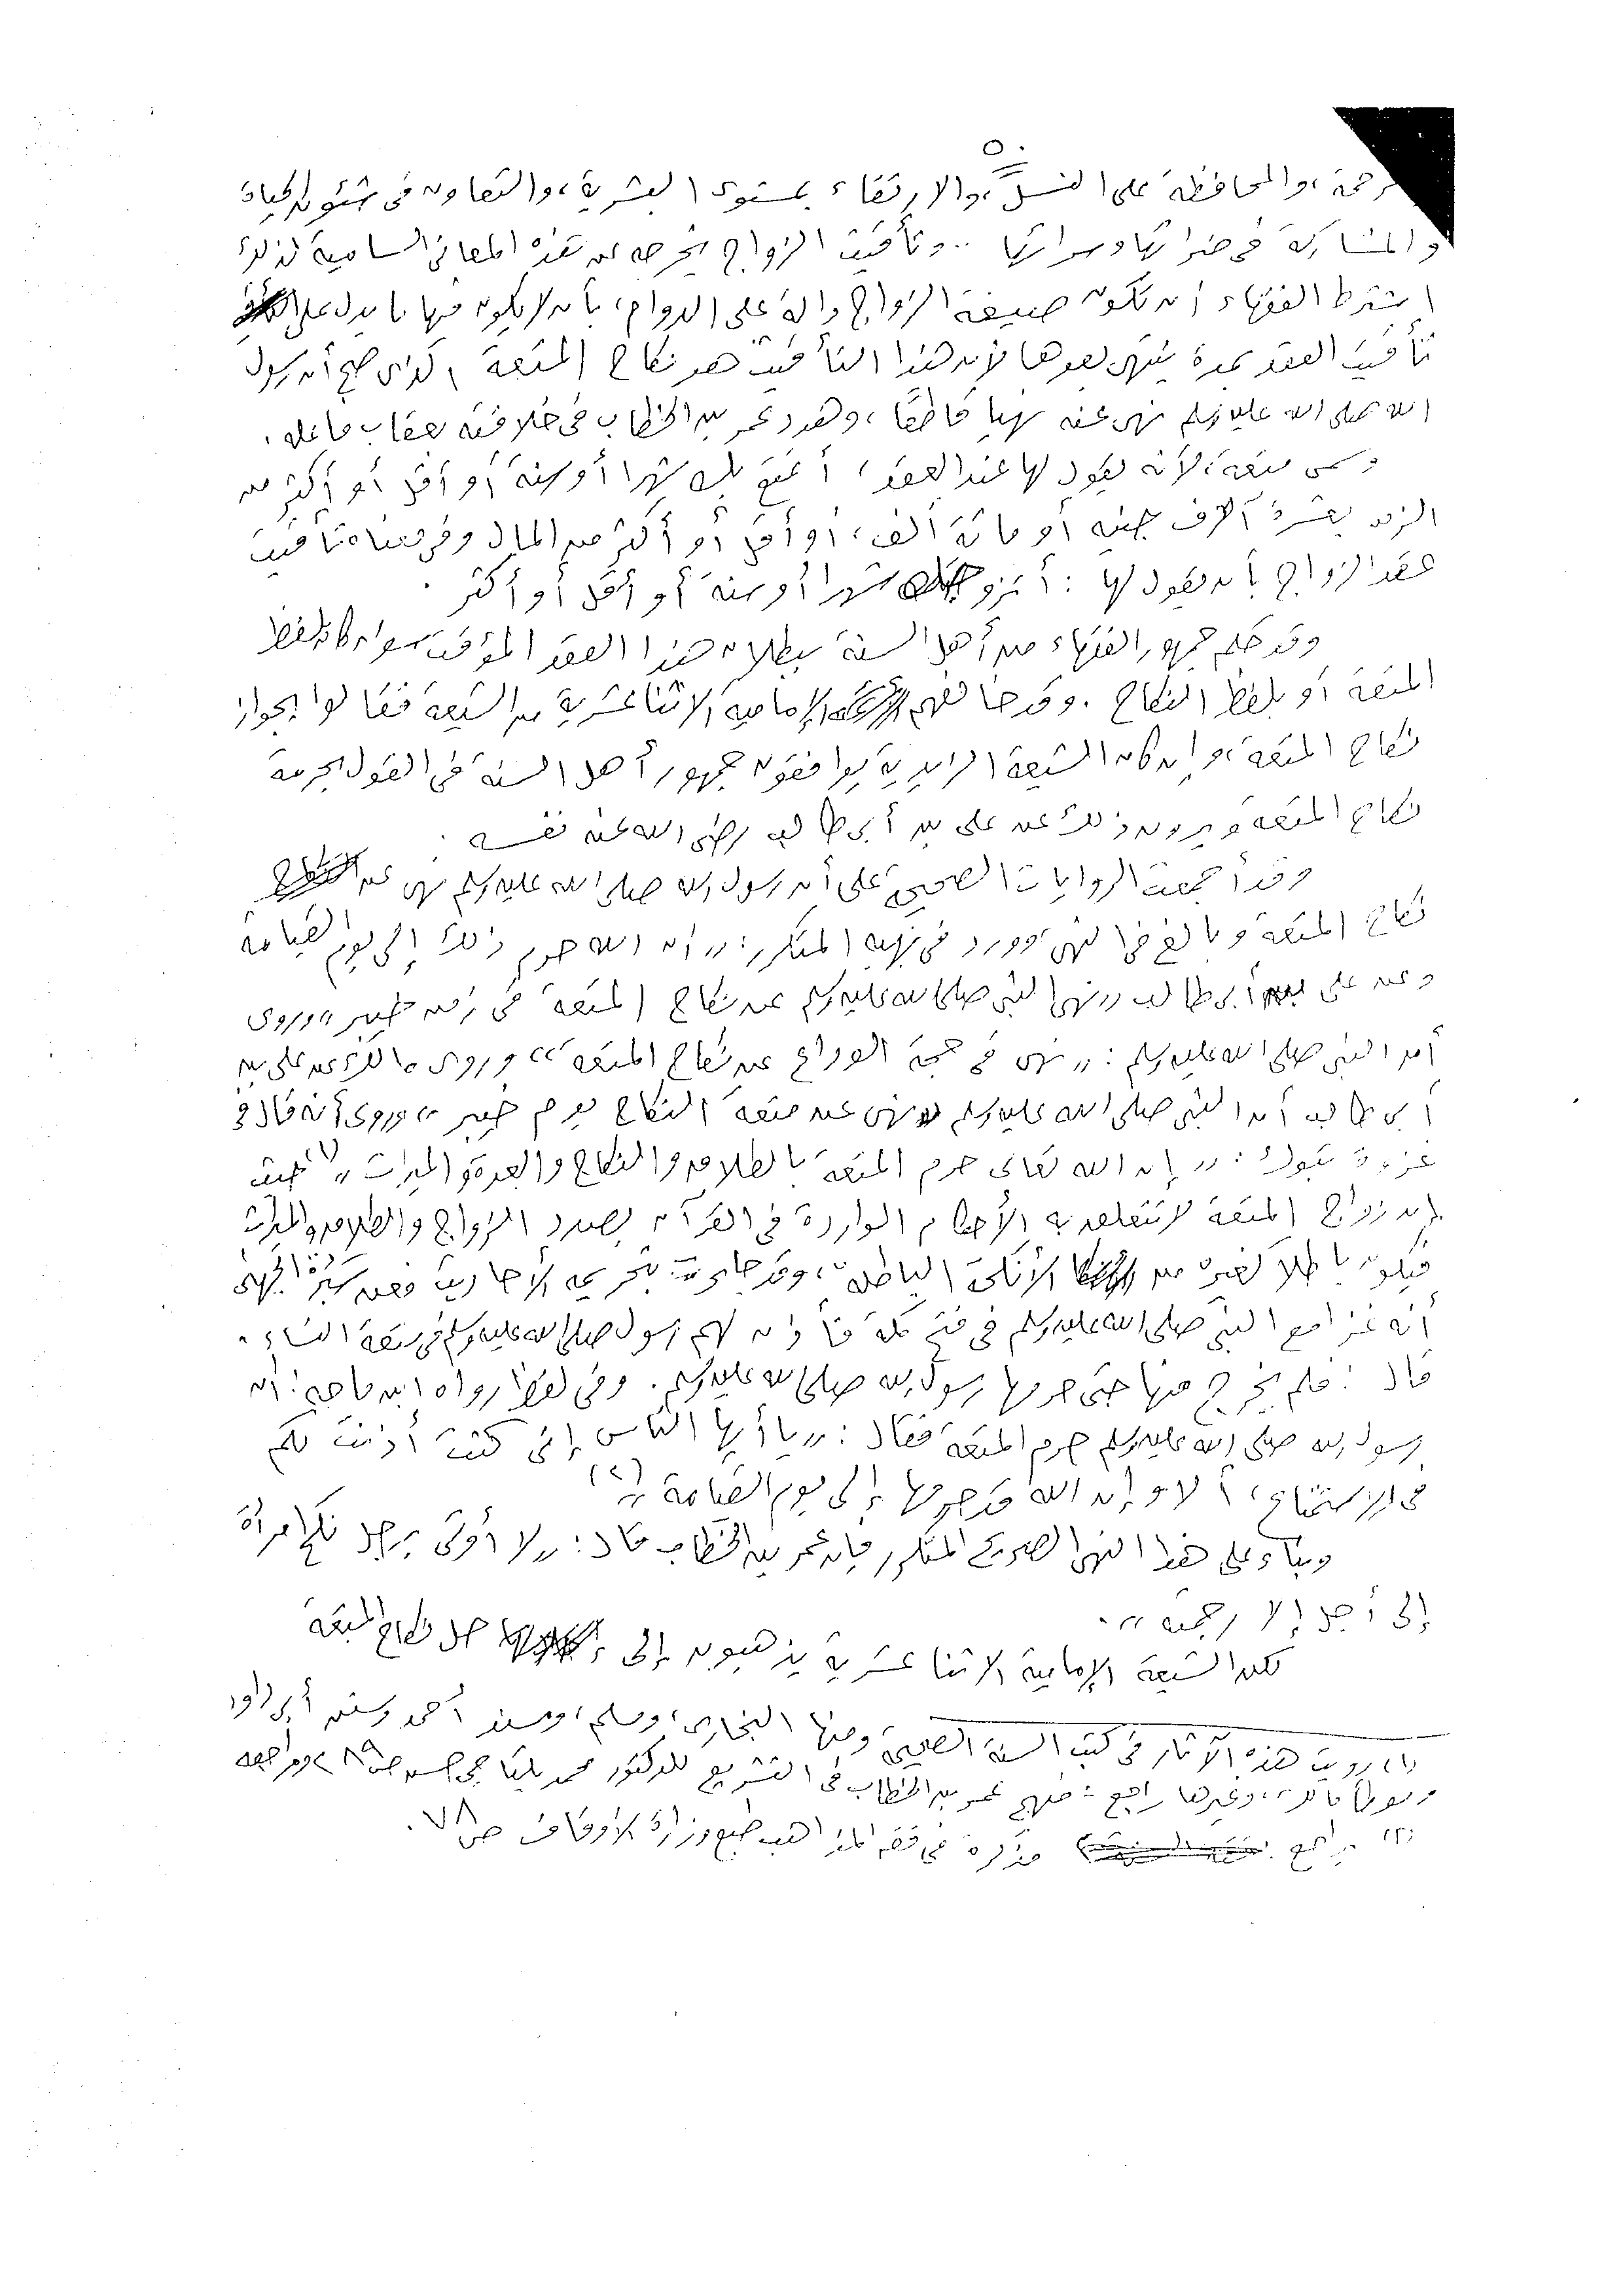 ٥
رحمة، والمحافظة على النسل، والارتقاء بمستوى البشرية، والتعاون فى شئون الحياة
والمشاركة فى ضرائها وسرائها .. وتأقيت الزواج يخرجه عن هذه المعانى السامية لذلك
اشترط الفقهاء أن تكون صيغة الزواج دالة على الدوام، بأن لا يكون فيها ما يدل على
تأقيت العقد بمدة ينتهى بعدها لأن هذا التأقيت هو نكاح المتعة الذى صح أن رسول
الله صلى الله عليه وسلم نهى عنه نهيا قاطعًا، وهدد عمر بن الخطاب فى خلافته بعقاب فاعله.
وسمى متعة، لأنه يقول لها عند العقد، أتمتع بك شهرا أو سنة أو أقل أو أكثر من
الزمن بعشرة آلاف جنيه أو مائة ألف، أو أقل أو أكثر من المال وفى معناه تأقيت
عقد الزواج بأن يقول لها : أتزوجك شهرا أو سنة أو أقل أو أكثر .
وقد حكم جمهور الفقهاء من أهل السنة ببطلان هذا العقد المؤقت سواء كان بلفظ
المتعة أو بلفظ النكاح . وقد خالفهم الإمامية الاثنا عشرية من الشيعة فقالوا بجواز
نكاح المتعة، وإن كان الشيعة الزيدية يوافقون جمهور أهل السنة فى القول بحرمة
نكاح المتعة ويروون ذلك عن على بن أبى طالب رضى الله عنه نفسه .
وقد أجمعت الروايات الصحيحة على أن رسول الله صلى الله عليه وسلم نهى عن
نكاح المتعة وبالغ فى النهى وورد فى نهيه المتكرر: "أن الله حرم ذلك إلى يوم القيامة
وعن على بن أبى طالب "نهى النبى صلى الله عليه وسلم عن نكاح المتعة فى زمن خيبر" وروى
أن النبى صلى الله عليه وسلم : "نهى فى حجة الوداع عن نكاح المتعة" وروى مالك عن على بن
أبى طالب أن النبى صلى الله عليه وسلم نهى عن متعة النكاح يوم خيبر"، وروى أنه قال فى
غزوة تبوك : "إن الله تعالى حرم المتعة بالطلاق والنكاح والعدة والميراث"(١) حيث
إن زواج المتعة لا تتعلق به الأحكام الواردة فى القرآن بصدد الزواج والطلاق والميراث
فيكون باطلا كغيره من الأنكحة الباطلة، وقد جاءت بتحريمه الأحاديث فعن سبرة الجهنى
أنه غزا مع النبى صلى الله عليه وسلم فى فتح مكة فأذن لهم رسول صلى الله عليه وسلم فى متعة النساء.
قال : فلم يخرج منها حتى حرمها رسول الله صلى الله عليه وسلم. وفى لفظ رواه ابن ماجه: أن
رسول الله صلى الله عليه وسلم حرم المتعة فقال : "يا أيها الناس إنى كنت أذنت لكم
فى الاستمتاع، ألا وإن الله قد حرمها إلى يوم القيامة"(٢)
وبناء على هذا النهى الصريح المتكرر فإن عمر بن الخطاب قال: "لا أوتى برجل نكح امرأة
إلى أجل إلا رجمته".
لكن الشيعة الإمامية الاثنا عشرية يذهبون إلى حل نكاح المتعة
(١) رويت هذه الآثار فى كتب السنة الصحيحة ومنها البخارى، ومسلم، ومسند أحمد وسنن أبى داود
وموطأ مالك، وغيرها راجع : منهج عمر بن الخطاب فى التشريع للدكتور محمد بلتاجى حسن
(٢) راجع مذكرة فى فقه المذاهب طبع وزارة الأوقاف ص ٧٨.